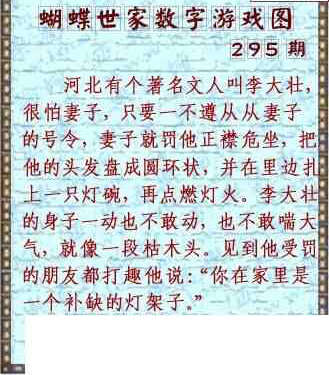 蝴蝶世家数字游戏图
295期
河北有个著名文人叫李大壮，
很怕妻子，只要一不遵从从妻子
的号令，妻子就罚他正襟危坐，把
他的头发盘成圆环状，并在里边扎
上一只灯碗，再点燃灯火。李大壮
的身子一动也不敢动，也不敢喘大
气，就像一段枯木头。见到他受罚
的朋友都打趣他说：“你在家里是
一个补缺的灯架子。”